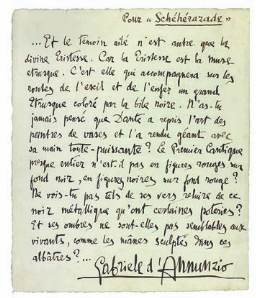 Pour "Schéhérazade"
... Et le Témoin ailé n'est autre que la
divine Tristesse. Car la Tristesse est la muse
étrusque. C'est elle qui accompagnera sur les
routes de l'exil et de l'enfer un grand
Etrusque coloré par la bile noire. N'as-tu
jamais pensé que Dante a repris l'art des
peintres de vases et l'a rendu géant avec
sa main toute-puissante? Le Premier Cantique
presque entier n'est-il pas en figures rouges sur
fond noir, en figures noires sur fond rouge?
Ne vois-tu pas tels de ses vers reluire de ce
noir métallique qu'ont certaines poteries?
Et ses ombres ne sont-elles pas semblables aux
vivants, comme les mânes sculptés dans ces
albâtres?...
Gabriele d'Annunzio